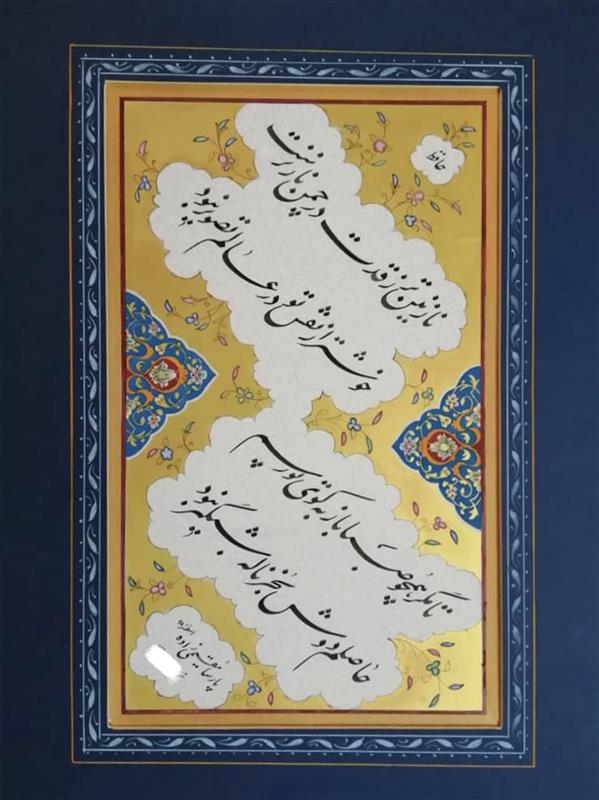 حافظ
نازنین تر ز قدت در چمن ناز نرست
خوشتر از نقش تو در عالم تصویر نبود
تا مگر همچو صبا باز به کوی تو رسم
حاصلم دوش بجز ناله شبگیر نبود